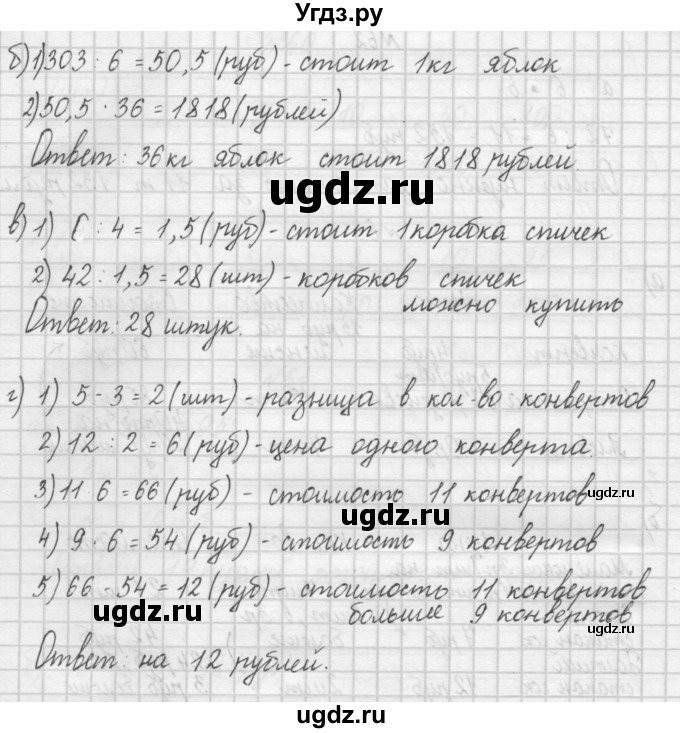 Угдз.ру
б) 1) 303 : 6 = 50,5 (руб) - стоит 1кг яблок
2) 50,5 · 36 = 1818 (рублей)
Ответ: 36кг яблок стоит 1818 рублей
ugdz.ru
в) 1) 6 : 4 = 1,5 (руб) - стоит 1 коробка спичек
2) 42 : 1,5 = 28 (шт) - коробков спичек
можно купить
Ответ: 28 штук.
г) 1) 5 - 3 = 2 (шт) - разница в кол-во конвертов
2) 12 : 2 = 6 (руб) - цена одного конверта.
3) 11 · 6 = 66 (руб) - стоимость 11 конвертов
ugdz.ru
ugdz.ru
4) 9 · 6 = 54 (руб) - стоимость 9 конвертов
5) 66 - 54 = 12 (руб) - стоимость 11 конвертов
ugdz.ru
больше 9 конвертов
ugdz.ru
Ответ: на 12 рублей.
ugdz.ru